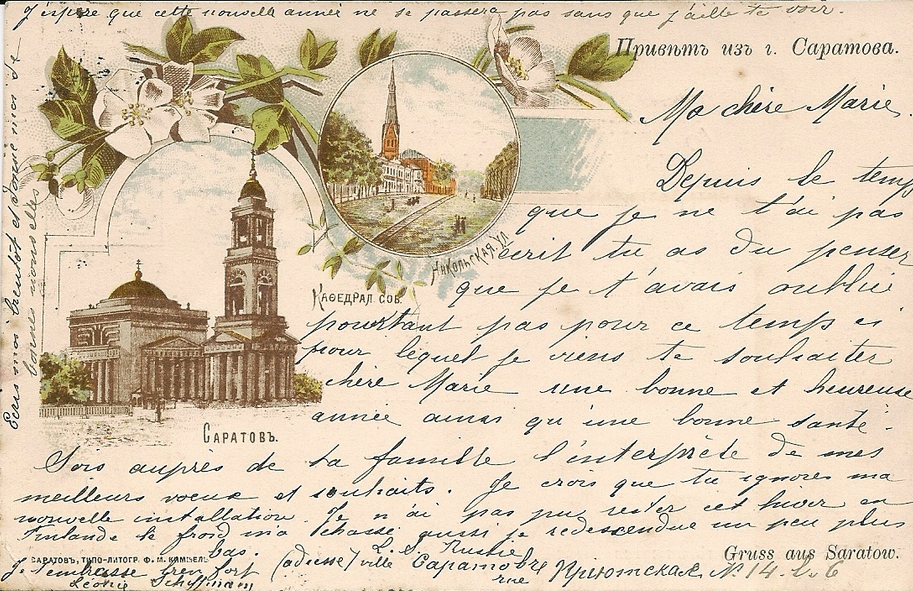 J'espère que cette nouvelle année ne se passera pas sans que j'aille te voir.
Привѣтъ изъ г. Саратова.
Ma chère Marie
Depuis le temps
que je ne t'ai pas
écrit tu as du penser
que je t'avais oublié
pourtant pas pour ce temps ci
pour lequel je viens te souhaiter
chère Marie une bonne et heureuse
année ainsi qu'une bonne santé.
Никольская ул.
Кафедрал. соб.
Саратовъ.
Sois auprès de ta famille l'interprète de mes
meilleurs voeux et souhaits. Je crois que tu ignores ma
nouvelle installation. Je n'ai pas pu rester cet hiver en
Finlande le froid m'a chassé aussi je redescendue un peu plus
bas.
Саратовъ, типо-литогр. Ф. М. Киммель
Gruss aus Saratow.
Je t'embrasse bien fort
Léonie Schiffmann
(adresse) ville Саратовъ
L. S. Russie
rue № 14
Ecris moi bientôt et donne moi de
bonnes nouvelles